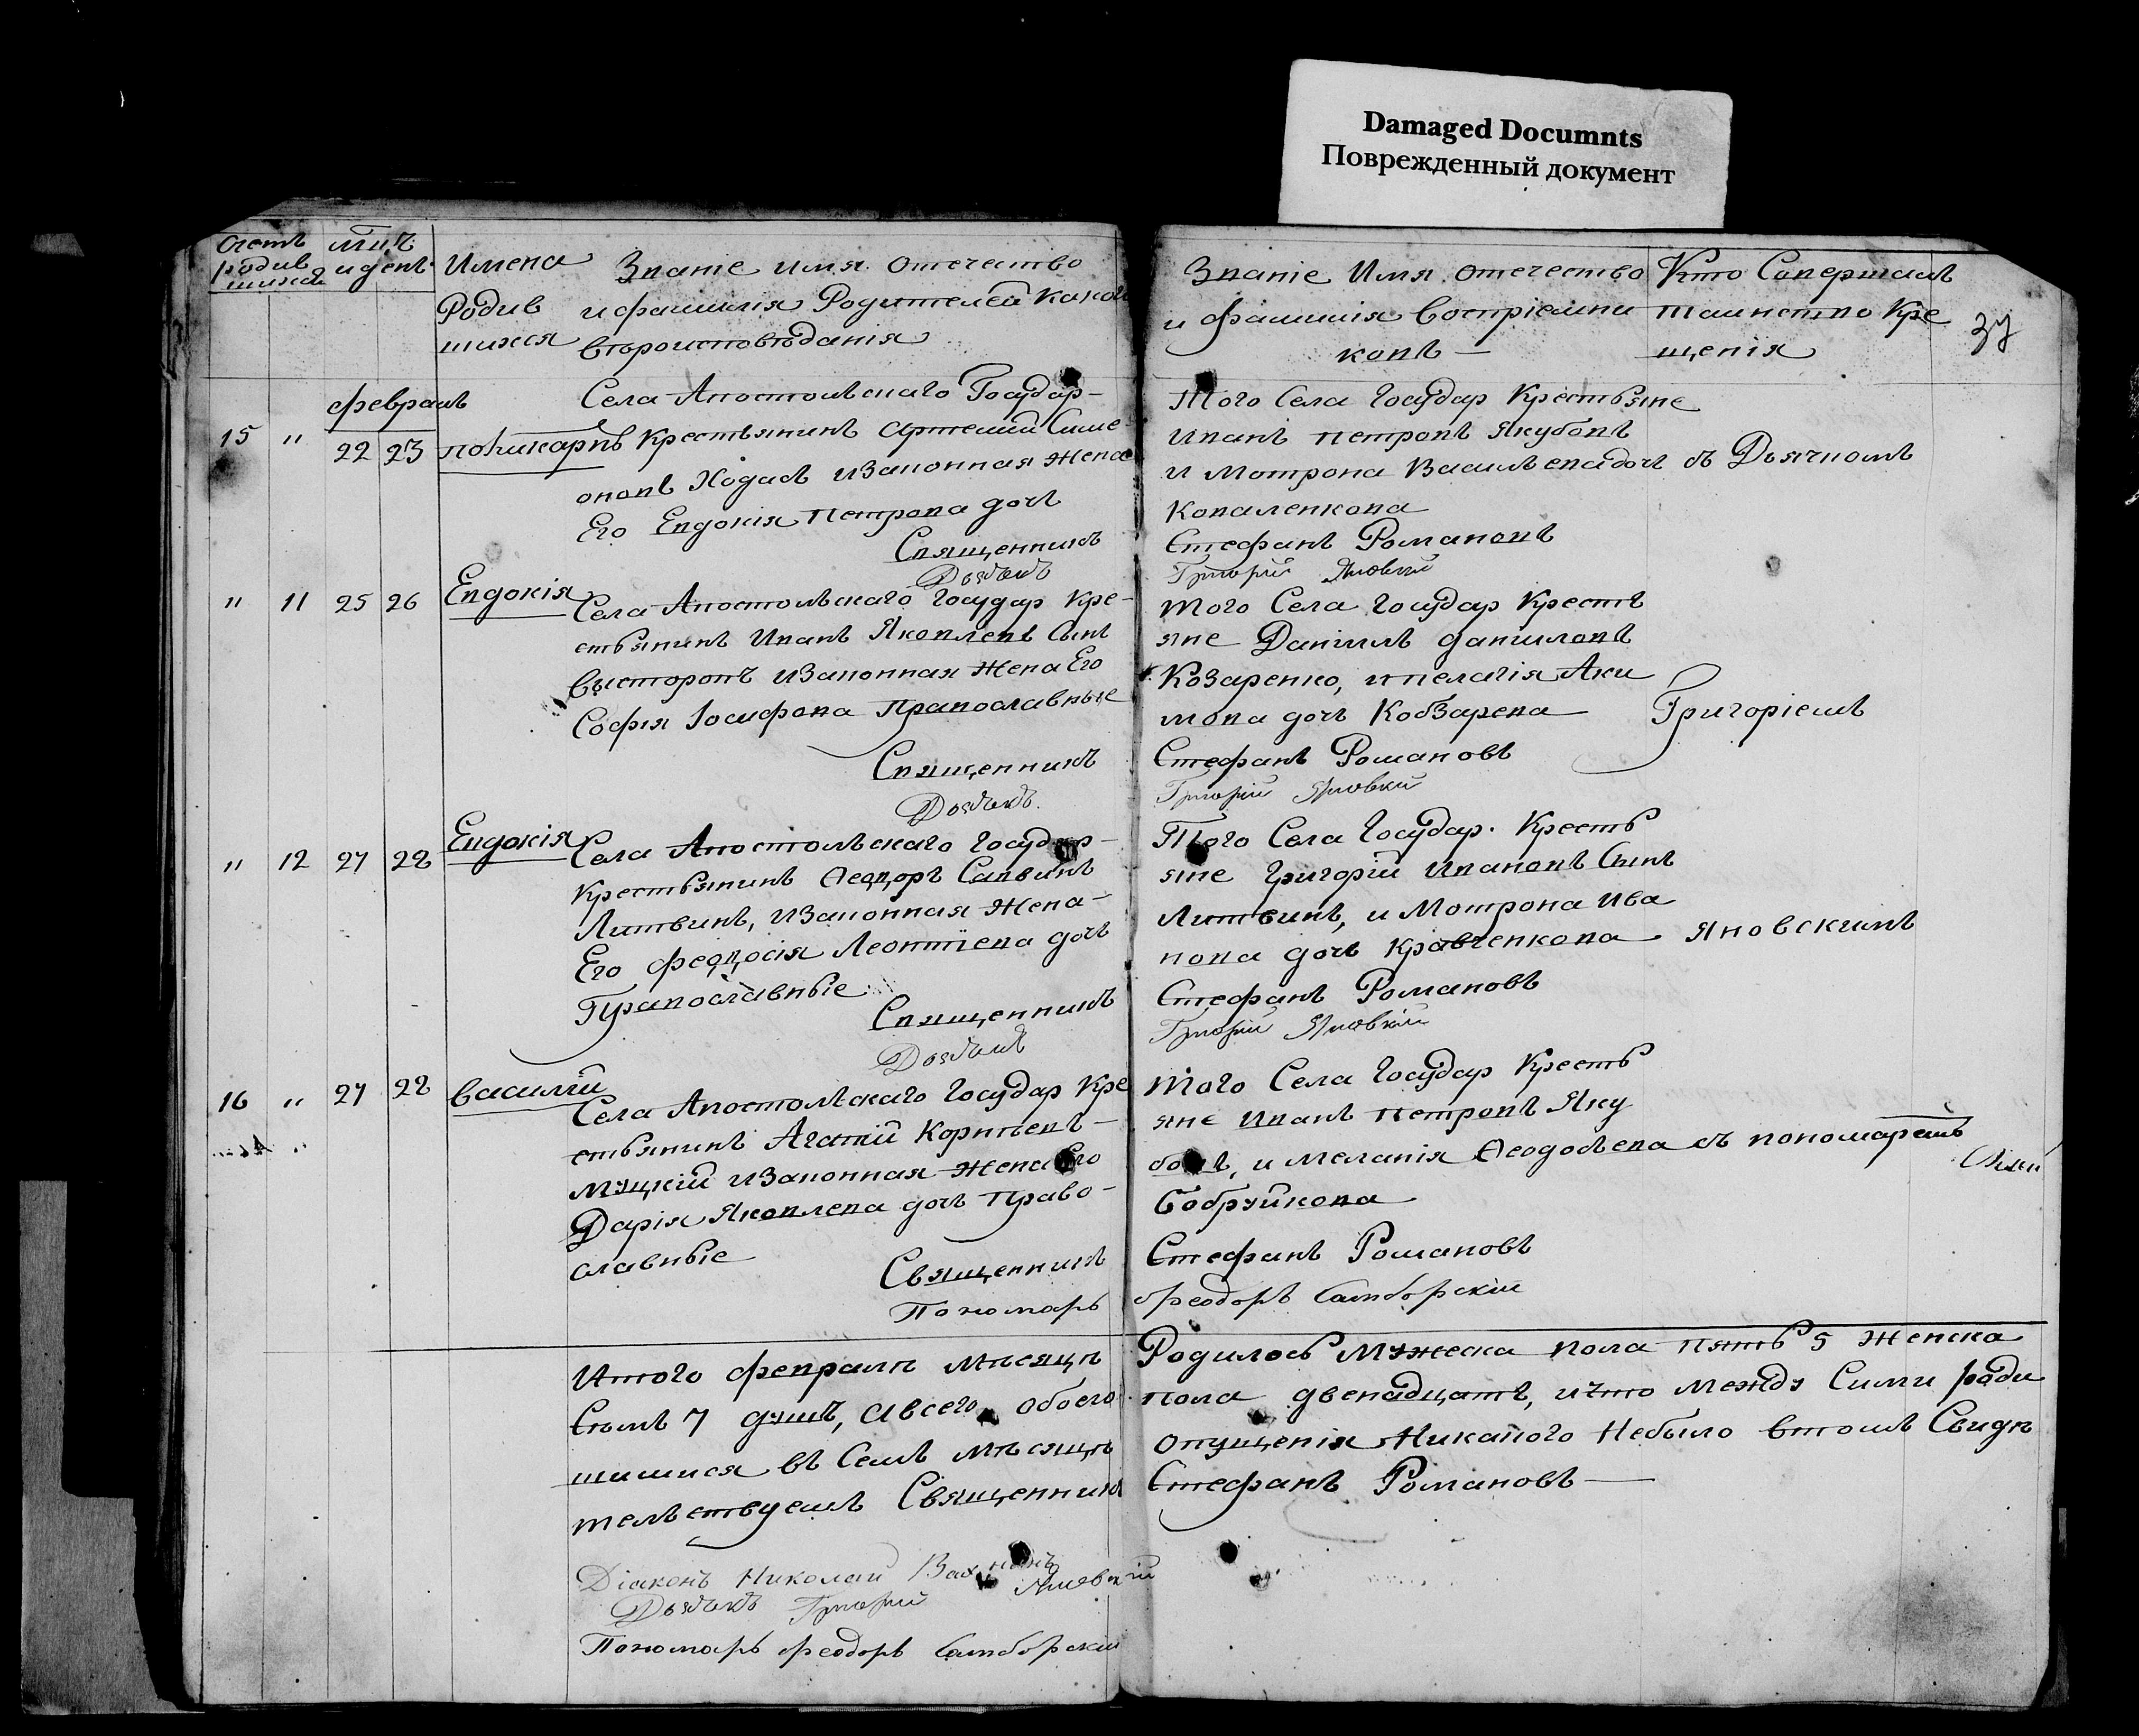 Damaged Documnts
Поврежденный документ
Счетъ родив шихся
мцъ и день
Имена Родив шихся
Званіе имя отечество
и фамилія Родителей какого
вѣроисповѣданія
Званіе Имя отечество
и фамилія воспріемни
ковъ —
Кто Совершалъ
таинство Кре
щенія
февраль
15 " 22 23 поликарпъ
Села Апостольскаго Государ-
Крестьянинъ Артемій Симе-
оновъ Ходасъ изаконная жена
Его Евдокія петрова дочь
Священникъ
Дьячекъ
Того Села Государ Крестьяне
Иванъ петровъ Якубовъ
и Мотрона Васильева дочь
Коваленкова
Стефанъ Романовъ
Григорій Яновскій
съ Дьячкомъ
" 11 25 26 Евдокія
Села Апостольскаго Государ Кре-
стьянинъ Иванъ Яковлевъ Сынъ
Высторопъ изаконная Жена Его
Софія Іосифова Православные
Священникъ
Дьячекъ
того Села Государ Кресть
яне Даніилъ даниловъ
Козаренко, ипелагія Аки
мова дочь Кобзарева
Стефанъ Романовъ
Григорій Яновскій
Григоріемъ
" 12 27 28 Евдокія
Села Апостольскаго Государ-
Крестьянинъ Ѳеодоръ Саввинъ
Литвинъ, изаконная Жена-
Его феодосія Леонтіева дочь
Православные
Священникъ
Дьячекъ
Того Села Государ. Кресть
яне Григорій Ивановъ Сынъ
Литвинъ, и Мотрона Ива
нова дочь Кравченкова
Стефанъ Романовъ
Григорій Яновскій
Яновскимъ
16 " 27 28 василій
Села Апостольскаго Государ Кре
стьянинъ Агапій Корніевъ-
Муцкій изаконная Жена Его
Дарія Яковлева дочь Право-
славные
Священникъ
Пономарь
того Села Государ Кресть
яне Иванъ петровъ Яку
бовъ, и Меланія Ѳеодосѣева
Бобруйкова
Стефанъ Романовъ
феодоръ Самборскій
съ пономаремъ
Итого февраля мѣсяця Родилось Мужеска пола пять 5 Женска
Сѣмъ 7 душъ, Авсего обоего пола двенадцать, ичто между Сими роди
шимися въ Семъ мѣсяцѣ опущенія Никакого Небыло втомъ Свидѣ
тельствуемъ Священникъ Стефанъ Романовъ —
Діаконъ Николай
Дьячекъ Григорій Яновскій
Пономарь феодоръ Самборскій